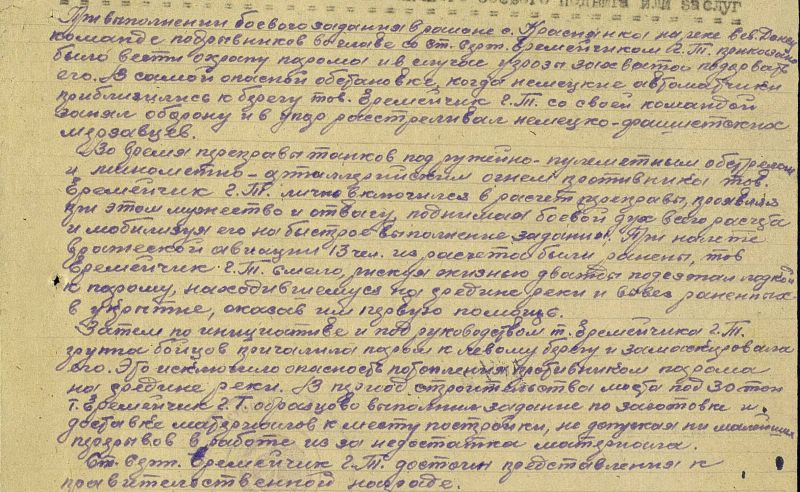 боевого подвига или заслуг
При выполнении боевого задания в районе с. Краснянка на реке Сев. Донец
команде подрывников во главе со ст. взрт. Еременчиком Г.Т. приказано
было вести охрану парома и в случае угрозы захвата подорвать
его. В самой опасной обстановке, когда немецкие автоматчики
приблизились к берегу тов. Еремейчик Г.Т. со своей командой
занял оборону и в упор расстреливал немецко-фашистских
мерзавцев.
Во время переправы танков под ружейно-пулеметным обстрелом
и минометно-артиллерийским огнем противника тов.
Еремейчик Г.Т. лично включился в расчет переправы, проявляя
при этом мужество и отвагу, поднимая боевой дух всего расчета
и мобилизуя его на быстрое выполнение задания. При налете
вражеской авиации 13 чел. из расчета были ранены, тов
Еремейчик Г.Т. смело, рискуя жизнью дважды подъезжал лодкой
к парому, находившемуся на средине реки и вывез раненных
в укрытие, оказав им первую помощь.
Затем по инициативе и под руководством т. Еремейчика Г.Т.
группа бойцов причалила паром к левому берегу и замаскировала
его. Это исключило опасность потопления противником парома
на средине реки. В период строительства моста под 30 тон
т. Еремейчик Г.Т. образцово выполнил задание по заготовке и
доставке материалов к месту постройки, не допуская ни малейших
перерывов в работе из за недостатка материала.
Ст. взрт. Еремейчик Г.Т. достоин представления к
правительственной награде.